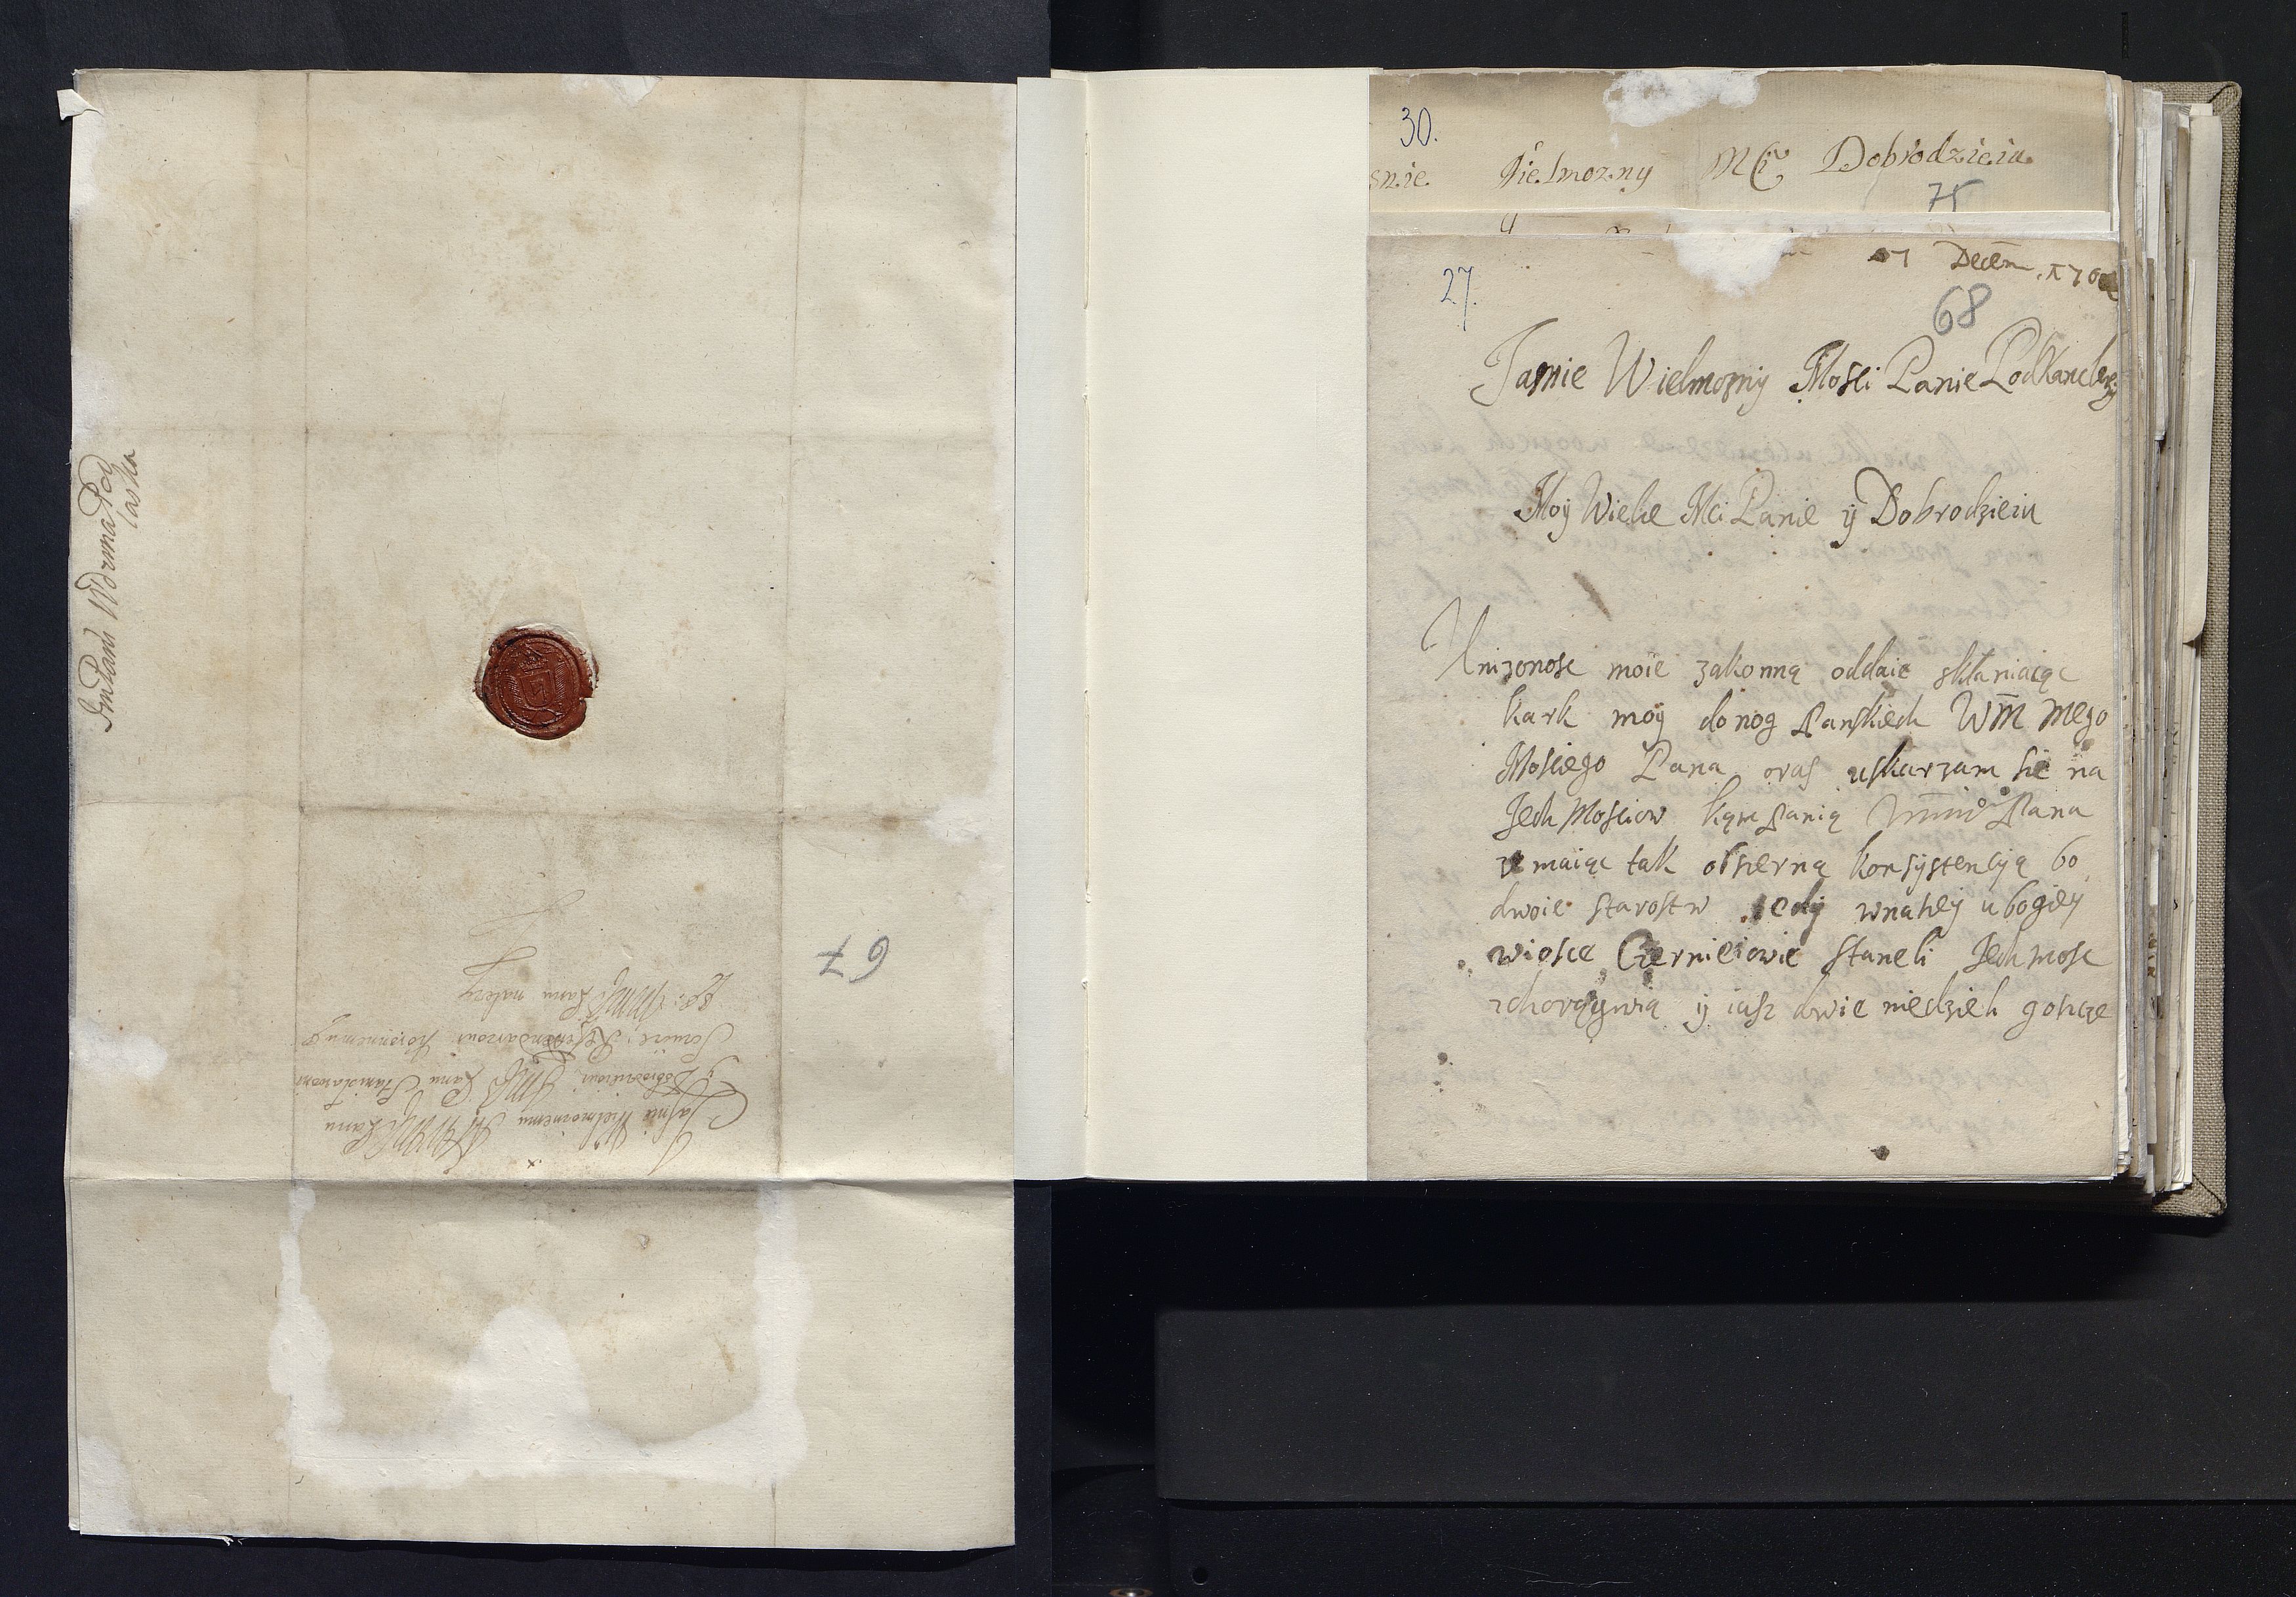 ImPani Wdzina Pod
laska
Jasnie Wielmoznemu
Dobrodzieiowi Panu Stanislawowi
Referendarzowi Koronnemu
Panu nalezy
67
30.
snie Wielmozny Mći Dobrodzieiu
75
27.
Decem. 170
68
Jasnie Wielmozny Mosci Panie Podkanclerzy
Moy Wielce Mci Panie y Dobrodzieiu
Unizonosc moie zakonną oddaie skłaniaiąc
kark moy do nog Panskiech Wm mego
Mosciego Pana oras uskarzam sie na
Jech Mosciow kąmpanią Pana
maiąc tak obserną konsystencyą bo
dwoie starostw tedy wnaszey ubogiey
wiosce Czerniciowie staneli Jech mosc
zchorągwią y iusz dwie niedzieli goscze